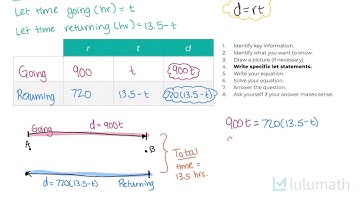 Let time going (hr) = t
Let time returning (hr) = 13.5 - t
d = rt
r t d
Going 900 t 900t
Returning 720 13.5 - t 720(13.5 - t)
1. Identify key information.
2. Identify what you want to know.
3. Draw a picture (if necessary).
4. Write specific let statements.
5. Write your equation.
6. Solve your equation.
7. Answer the question.
8. Ask yourself if your answer makes sense.
900t = 720(13.5 - t)
Going d = 900t
A B
d = 720(13.5 - t) Returning
Total
time =
13.5 hrs.
lulumath